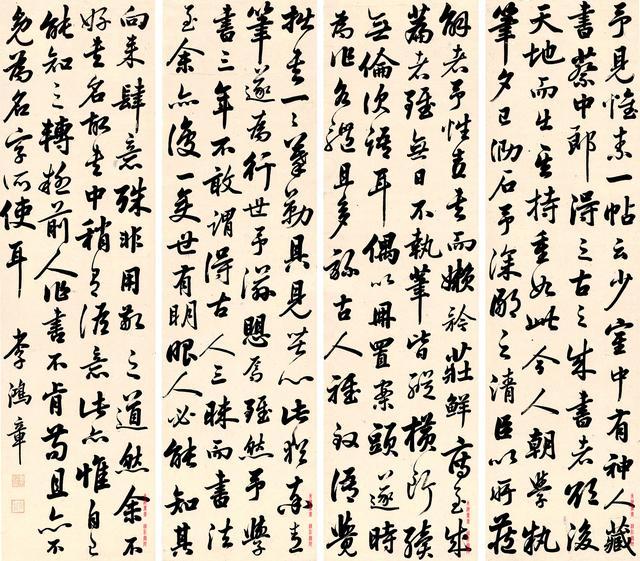 予见怀素一帖云少室中有神人藏
書蔡中郎得之古之成書者欲後
天地而出其持重如此今人朝學執
筆夕已勒石予深鄙之清臣以所藏
予性書而嫩於莊鮮
篇者雖無日不執筆皆縱橫斷續
無倫次語耳偶以冊置案頭遂時
為作各體且多錄古人雅致語覺
拙書一一摹勒具見苦心此猶東
筆遂為行世予滋愧焉雖然予學
書三年不敢謂得古人三昧而書法
至余亦復一變世有明眼人必能知其
向來肆意殊非用敬之道然余不
好書名故書中稍有淡意此亦惟自己
能知之轉極前人作書不肯苟且亦不
免為名字所使耳 李鴻章